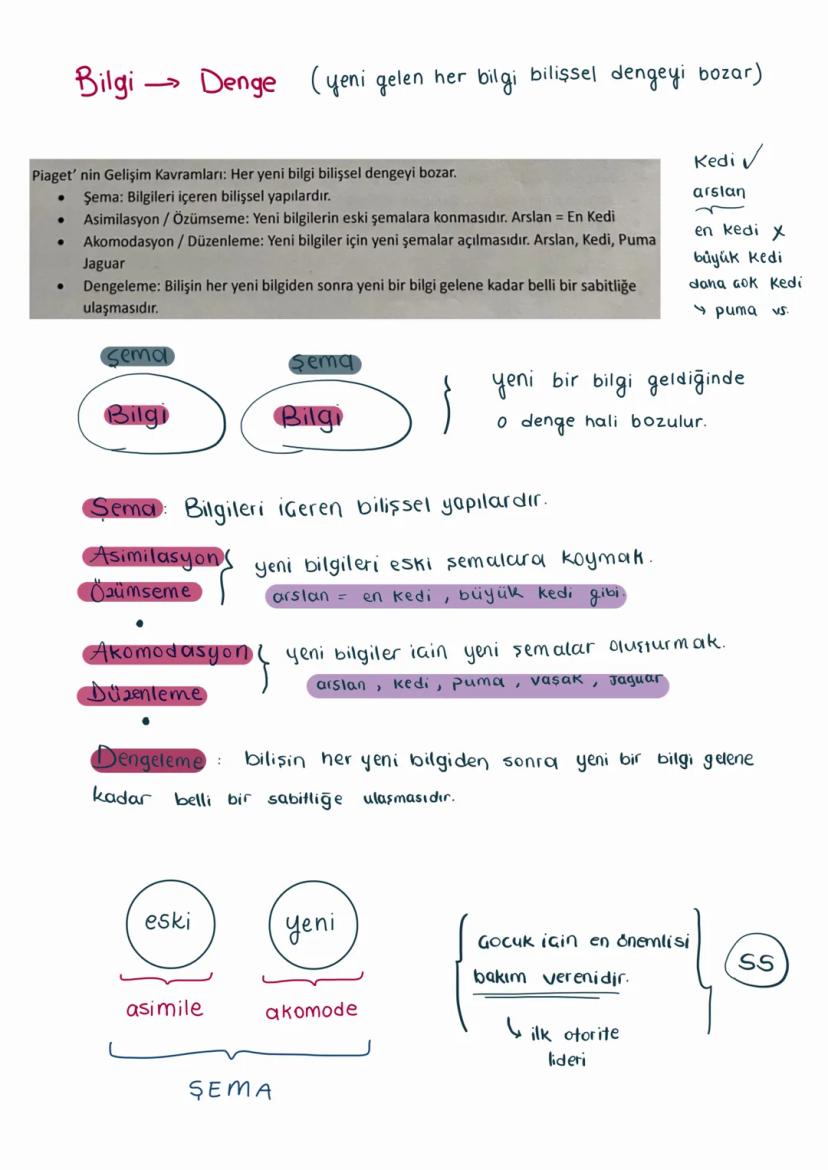 Bilgi → Denge (yeni gelen her bilgi bilişsel dengeyi bozar)
Piaget' nin Gelişim Kavramları: Her yeni bilgi bilişsel dengeyi bozar.
• Şema: Bilgileri içeren bilişsel yapılardır.
• Asimilasyon / Özümseme: Yeni bilgilerin eski şemalara konmasıdır. Arslan = En Kedi
• Akomodasyon / Düzenleme: Yeni bilgiler için yeni şemalar açılmasıdır. Arslan, Kedi, Puma
Jaguar
• Dengeleme: Bilişin her yeni bilgiden sonra yeni bir bilgi gelene kadar belli bir sabitliğe
ulaşmasıdır.
Kedi ✓
arslan
en kedi x
büyük kedi
daha çok kedi
↳ puma vs.
şema şema
Bilgi Bilgi
yeni bir bilgi geldiğinde
o denge hali bozulur.
Şema: Bilgileri içeren bilişsel yapılardır.
Asimilasyon
Özümseme
yeni bilgileri eski şemalara koymak.
arslan = en kedi, büyük kedi gibi.
Akomodasyon
Düzenleme
yeni bilgiler için yeni şemalar oluşturmak.
arslan, kedi, puma, vaşak, Jaguar
Dengeleme : bilişin her yeni bilgiden sonra yeni bir bilgi gelene
kadar belli bir sabitliğe ulaşmasıdır.
eski yeni
asimile akomode
ŞEMA
Çocuk için en önemlisi
bakım verenidir.
↳ ilk otorite
lideri
SS